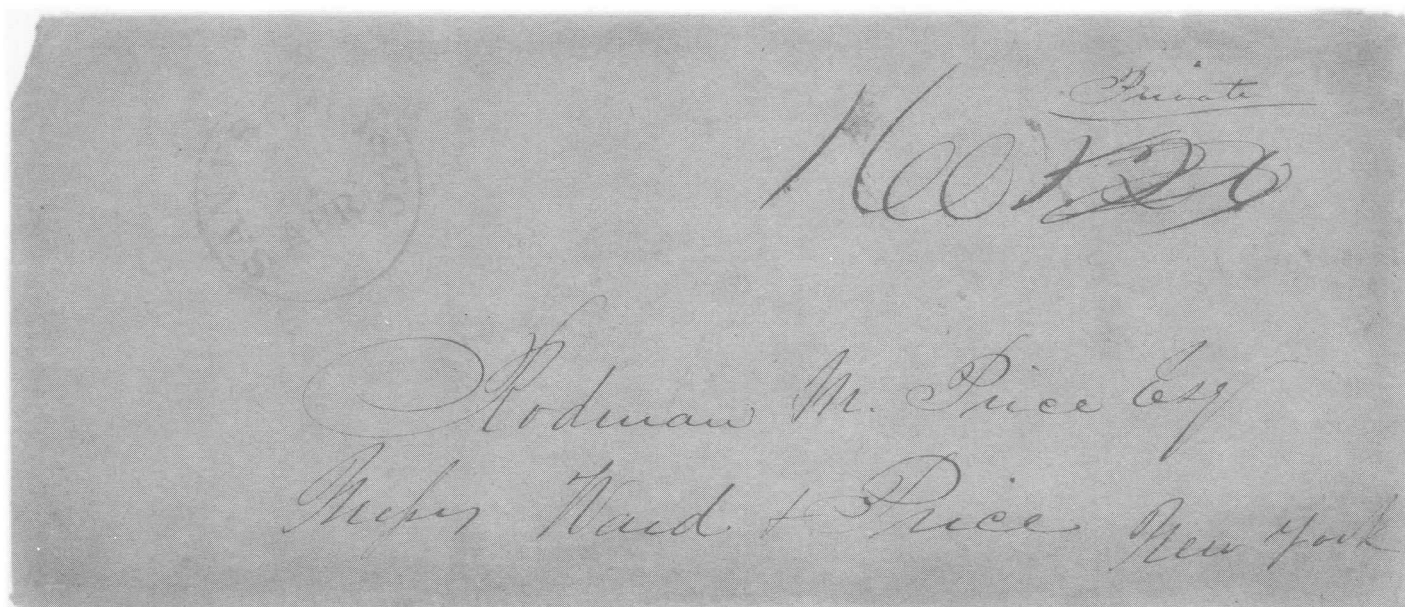 Private
Rodman M. Price Esq
Messrs Ward & Price New York